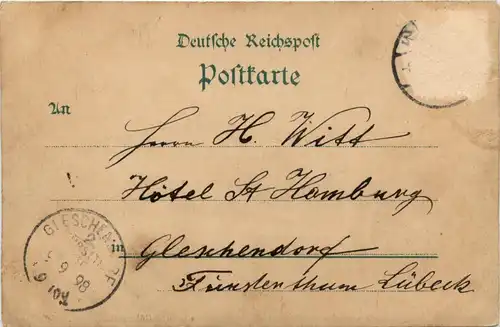 Deutsche Reichspost
Postkarte
An
Herrn H. Witt
Hôtel St Hamburg
in Gleschendorf
Fürstenthum Lübeck
GLESCHENDORF
9 98